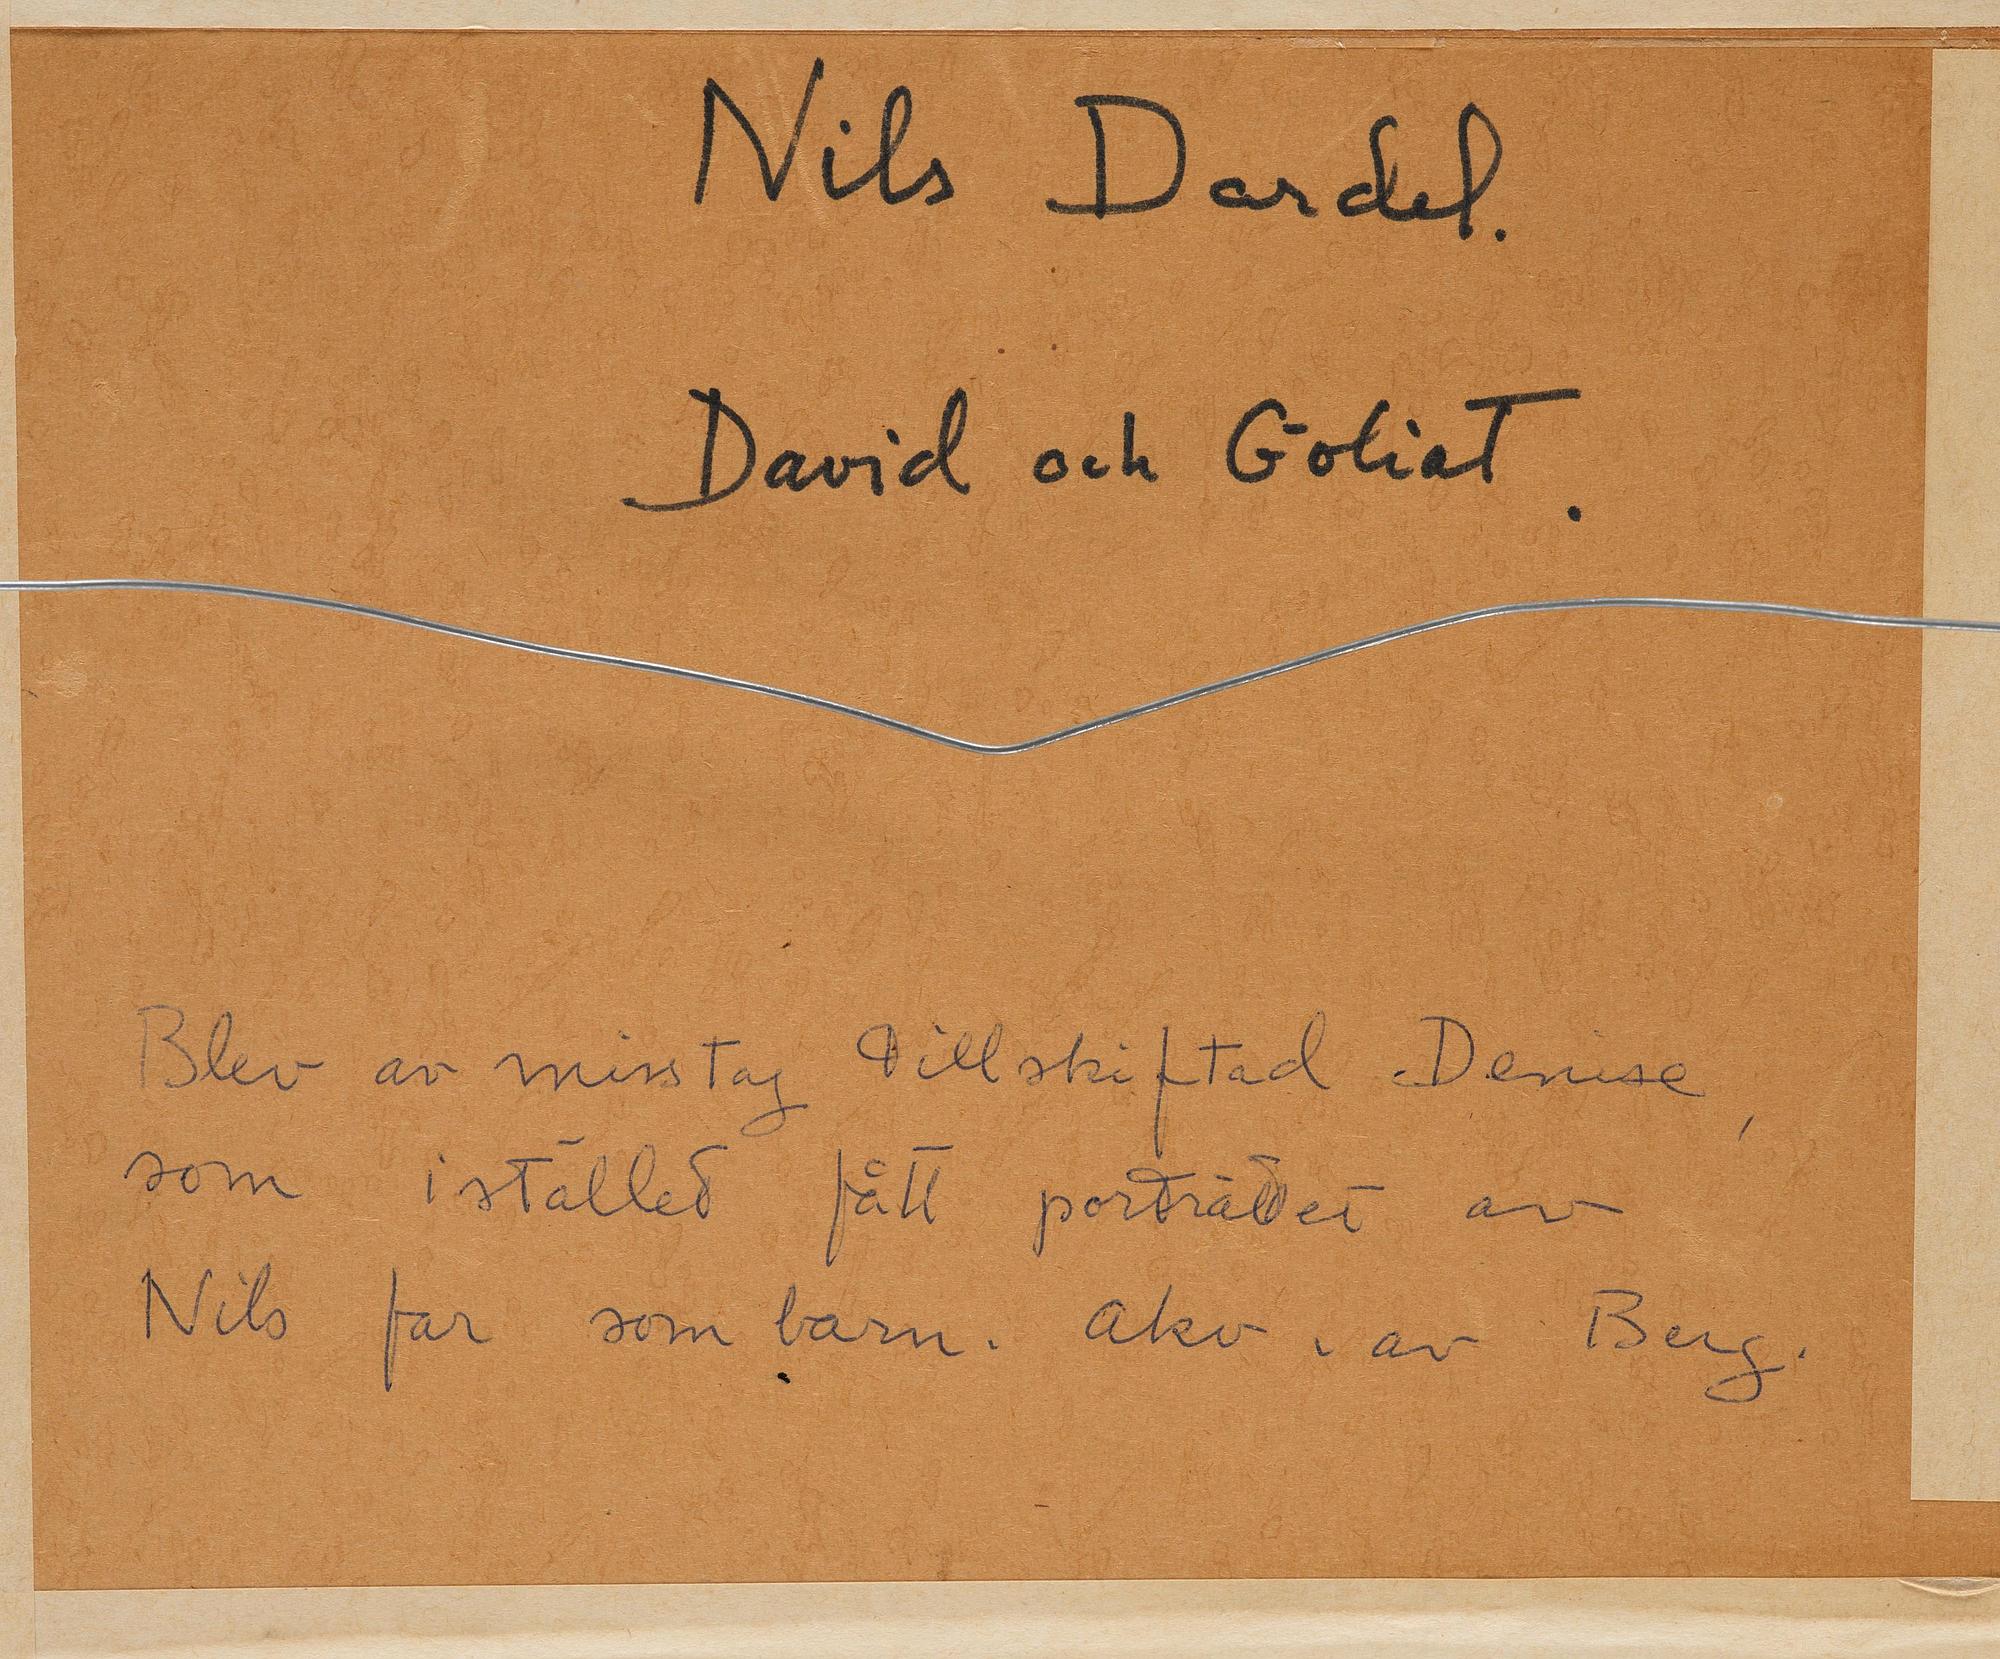 Nils Dardel.
David och Goliat.
Blev av misstag tillskiftad Denise,
som istället fått porträttet av
Nils far som barn. Akv. av Berg.